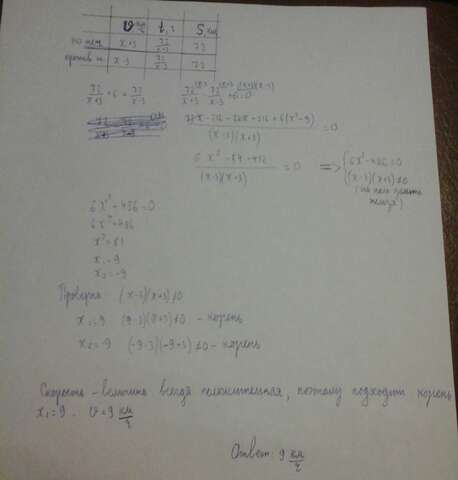 v км/ч t, ч S, км
по теч. x+3 72/x+3 72
против т. x-3 72/x-3 72
72/x+3 + 6 = 72/x-3
72/x+3 - 72/x-3 + 6 = 0
72x - 216 - 72x - 216 + 6(x²-9) / (x-3)(x+3) = 0
6x² - 54 - 432 / (x-3)(x+3) = 0 => { 6x²-486=0
(x-3)(x+3)≠0
(на нуль делить
нельзя)
6x² + 486 = 0
6x² = 486
x² = 81
x₁ = 9
x₂ = -9
Проверка: (x-3)(x+3)≠0
x₁=9 (9-3)(9+3)≠0 - корень
x₂=-9 (-9-3)(-9+3)≠0 - корень
Скорость - величина всегда положительная, поэтому подходит корень
x₁=9. v=9 км/ч
Ответ: 9 км/ч